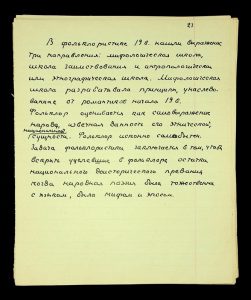 23
В фольклористике 19 в. нашли выражение
три направления: мифологическая школа,
школа заимствования и антропологическая
или этнографическая школа. Мифологическая
школа разрабатывала принципы, унаследо-
ванные от романтиков начала 19 в.
Фольклор оценивается как самовыражение
народа, извечная данность его этнической,
национальной
сущности. Фольклор исконно самобытен.
Задача фольклористики заключается в том, чтобы
вскрыть уцелевшие в фольклоре остатки
национального доисторического предания,
когда народная поэзия была тождественна
с языком, была мифом и эпосом.